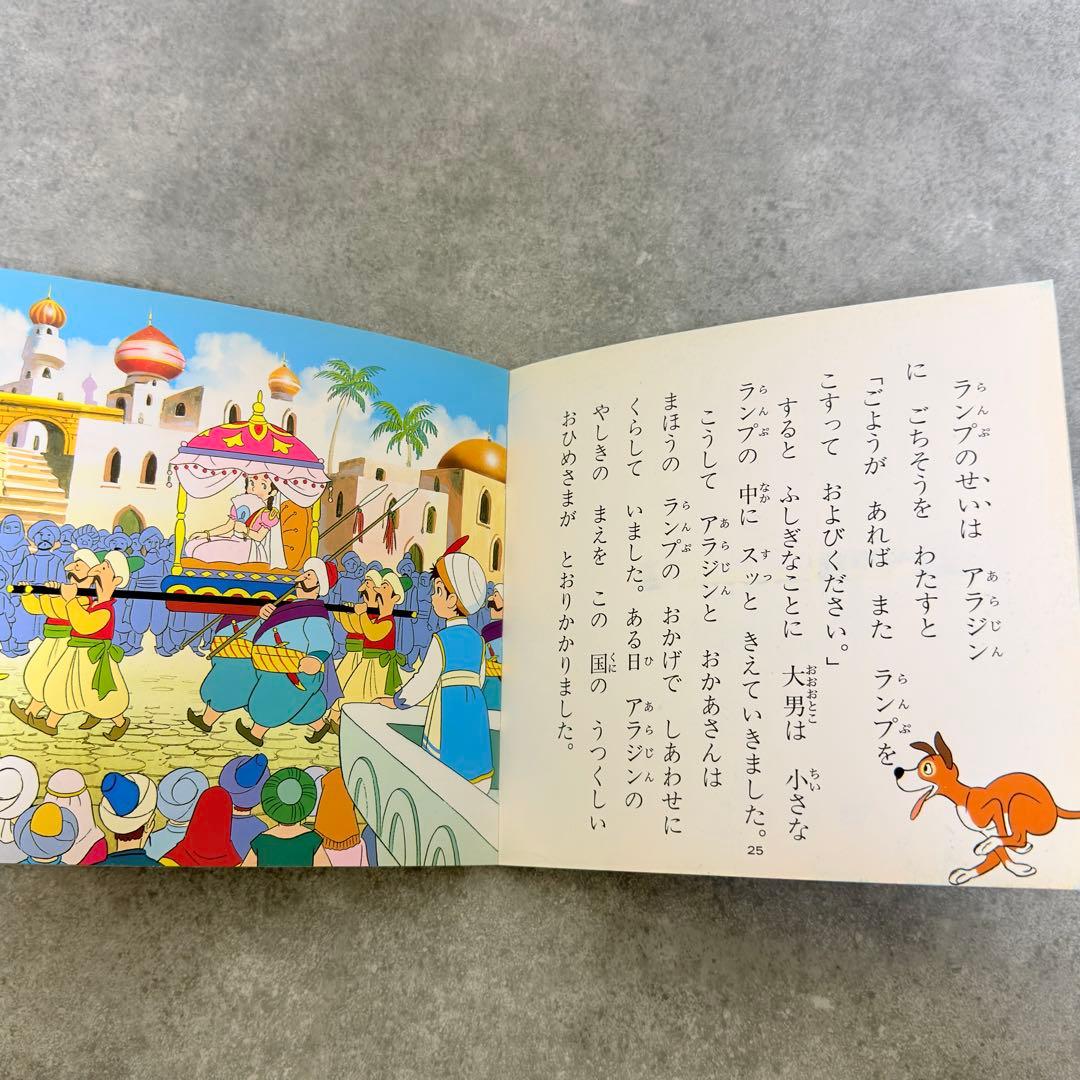 ランプのせいは アラジン
に ごちそうを わたすと
「ごようが あれば また ランプを
こすって およびください。」
すると ふしぎなことに 大男は 小さな
ランプの 中に スッと きえていきました。
こうして アラジンと おかあさんは
まほうの ランプの おかげで しあわせに
くらして いました。ある日 アラジンの
やしきの まえを この 国の うつくしい
おひめさまが とおりかかりました。
25